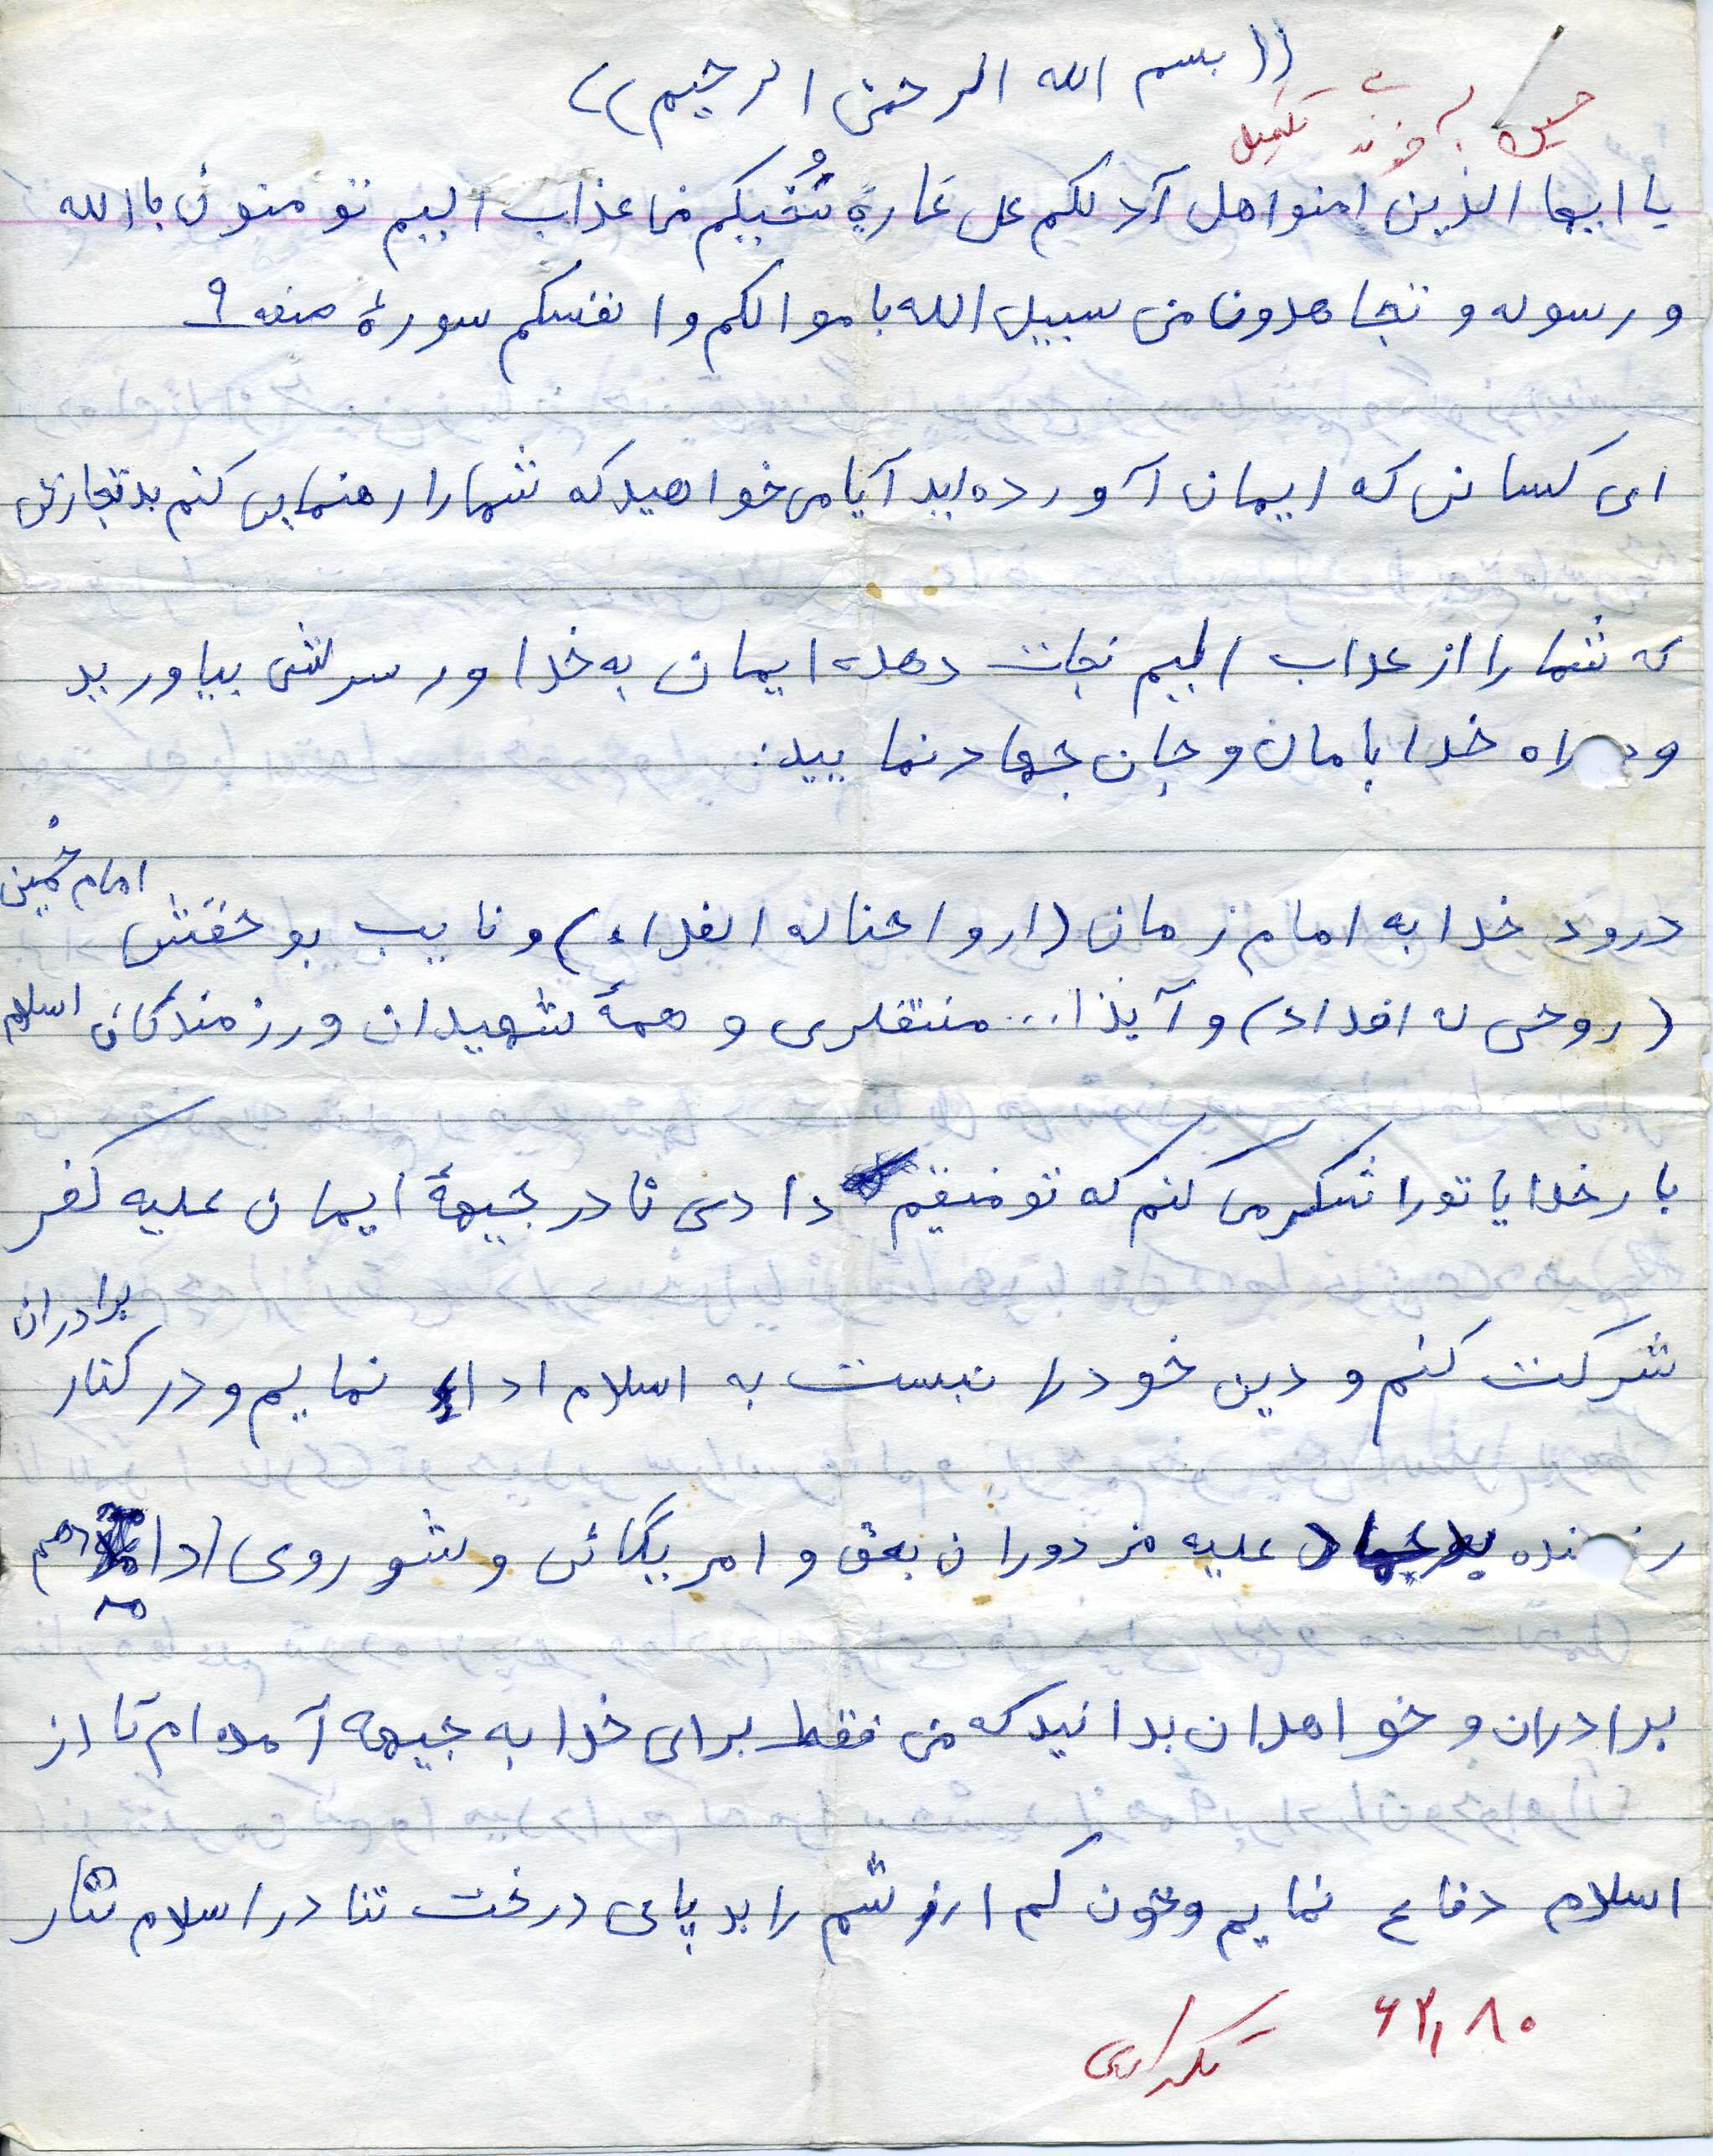 ((بسم الله الرحمن الرحیم))
تکمیل
یا ایها الذین امنوا هل آدلکم علی تجارة تُنجیکم من عذاب الییم تومنون باالله
و رسوله و تجاهدون من سبیل الله باموالکم و انفسکم سورهٔ صفه ۹
ای کسانی که ایمان آورده اید آیا می خواهید که شما را رهنمایی کنم به تجارتی
که شما را از عذاب الییم نجات دهد ایمان به خدا و رسولش بیاورید
و در راه خدا با مال و جان جهاد نمایید:
درود خدا به امام زمان (ارواحنا له الفداء) و نایب بر حقش امام خمینی
(روحی له افداء) و آیةا... منتظری و همهٔ شهیدان و رزمندگان اسلام
بار خدایا تو را شکر می کنم که توفیقم دادی تا در جبههٔ ایمان علیه کفر
شرکت کنم و دین خود را نبست به اسلام اداء نمایم و در کنار برادران
رزمنده به جهاد علیه مزدوران بعثی و امریکائی و شوروی ادامه دهم
برادران و خواهران بدانید که من فقط برای خدا به جبهه آمده ام تا از
اسلام دفاع نمایم و خون کم ارزشم را به پای درخت تنادر اسلام نثار
۶۲۱۸۰